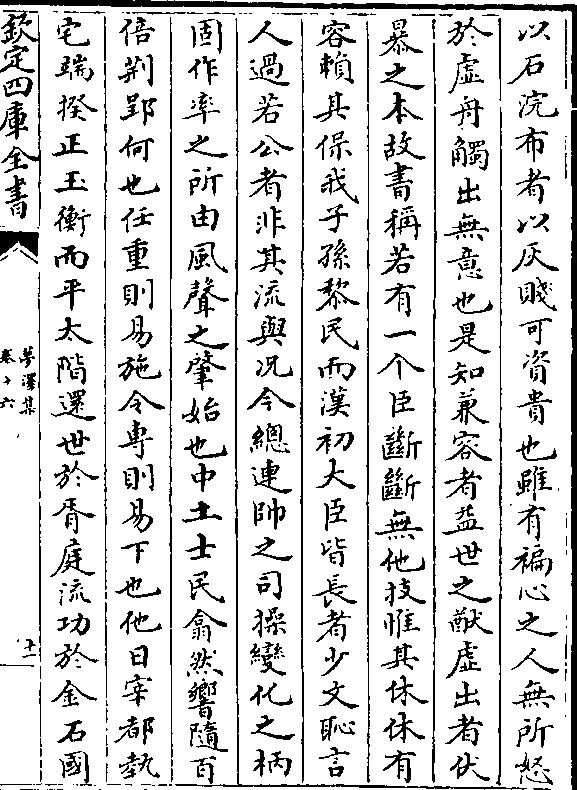 以石浣布者以灰賤可資貴也雖有褊心之人無所怒
於虛舟觸出無意也是知兼容者盖世之猷虛出者伏
暴之本故書稱若有一个臣斷斷無他技惟其休休有
容賴其保我子孫黎民而漢初大臣皆長者少文恥言
人過若公者非其流與況今總連帥之司操變化之柄
固作率之所由風聲之肇始也中土士民翕然響隨百
倍荆郢何也任重則易施令專則易下也他日宰都執
宅端揆正玉衡而平太階還世於胥庭流功於金石國
欽定四庫全書
夢澤集
卷十六
十一